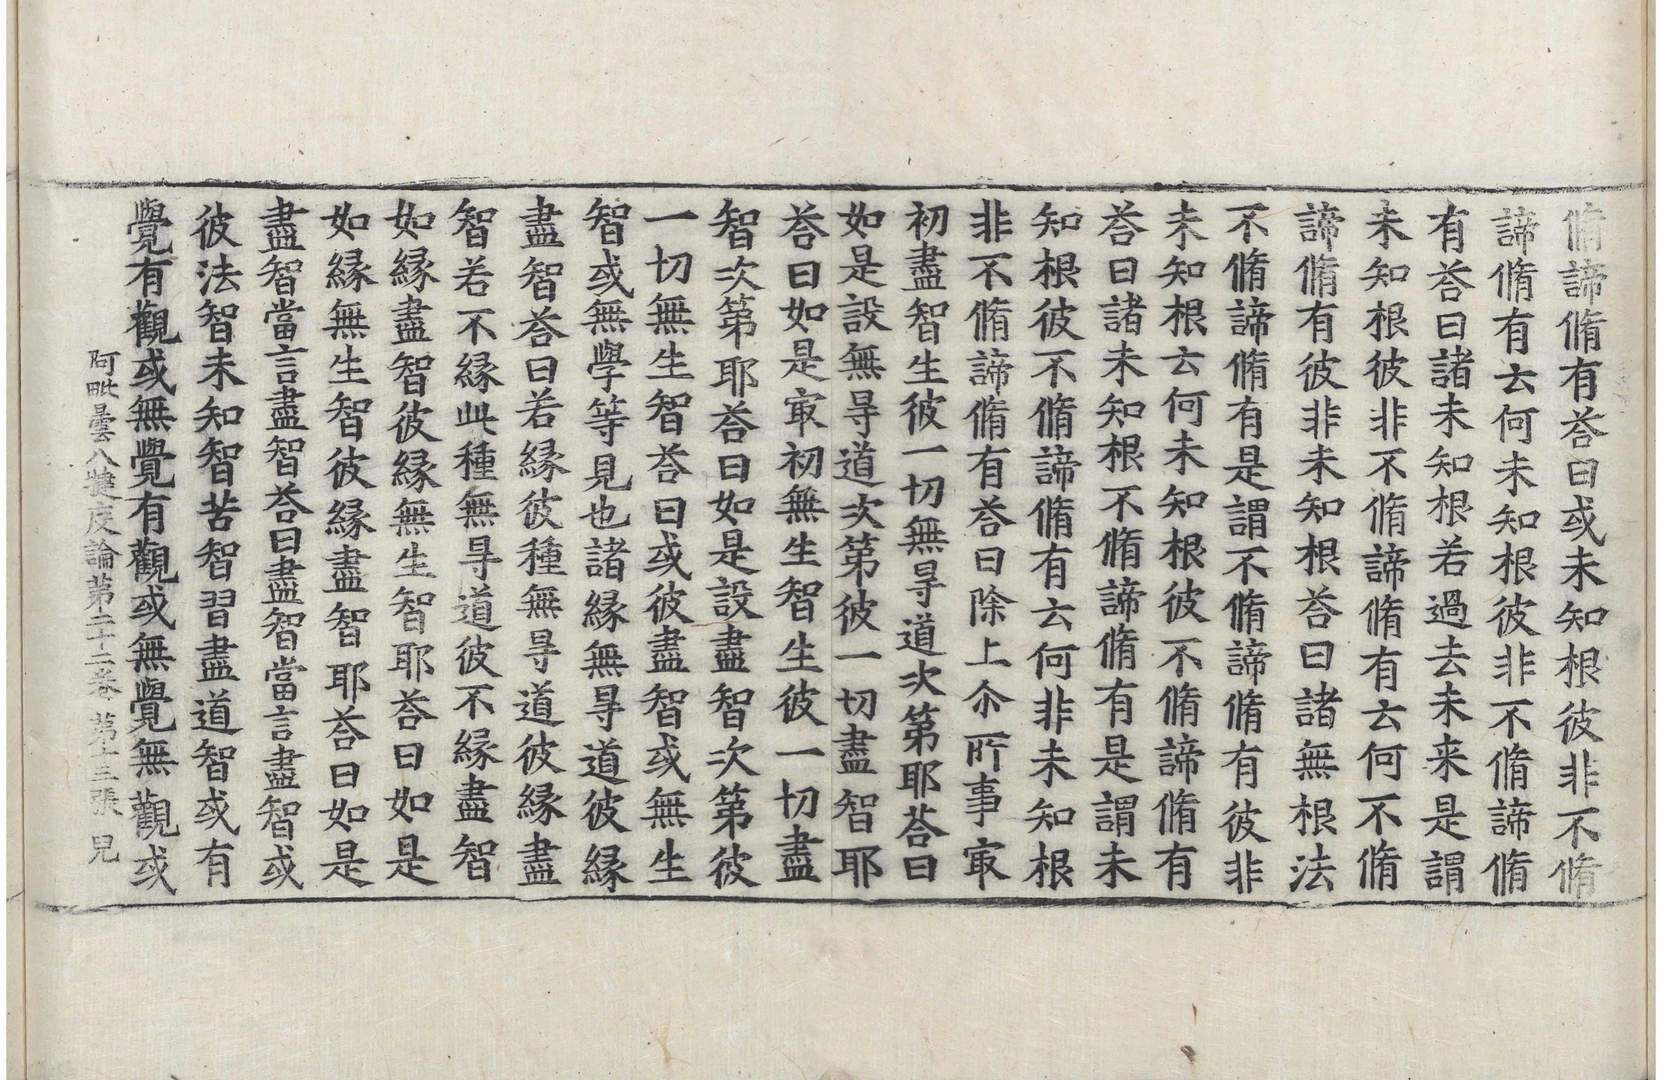 脩諦脩有荅曰或未知根彼非不脩
諦脩有云何未知根彼非不脩諦脩
有荅曰諸未知根若過去未来是謂
未知根彼非不脩諦脩有云何不脩
諦脩有彼非未知根荅曰諸無根法
不脩諦脩有是謂不脩諦脩有彼非
未知根云何未知根彼不脩諦脩有
荅曰諸未知根不脩諦脩有是謂未
知根彼不脩諦脩有云何非未知根
非不脩諦脩有荅曰除上尒所事㝡
初盡智生彼一切無㝵道次第耶荅曰
如是設無㝵道次第彼一切盡智耶
荅曰如是㝡初無生智生彼一切盡
智次第耶荅曰如是設盡智次第彼
一切無生智荅曰或彼盡智或無生
智或無學等見也諸緣無㝵道彼緣
盡智荅曰若緣彼種無㝵道彼緣盡
智若不緣此種無㝵道彼不緣盡智
如緣盡智彼緣無生智耶荅曰如是
如緣無生智彼緣盡智耶荅曰如是
盡智當言盡智荅曰盡智當言盡智或
彼法智未知智苦智習盡道智或有
覺有觀或無覺有觀或無覺無觀或
阿毗曇八犍度論第二十二卷 第十三張 皃